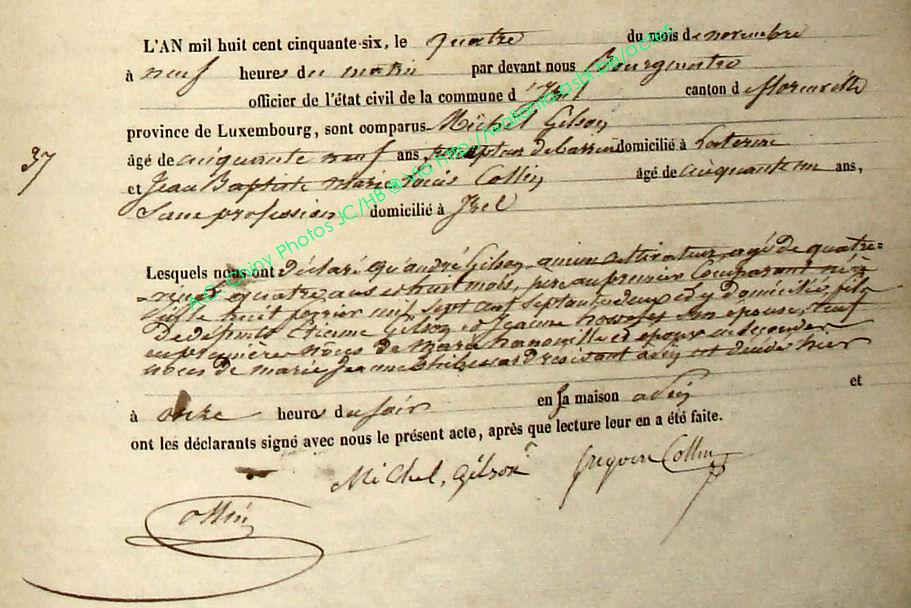 L'AN mil huit cent cinquante-six, le quatre du mois de novembre
à neuf heures du matin par devant nous Bourgmestre
officier de l'état civil de la commune d'Izel canton d florenville
province de Luxembourg, sont comparus Michel Gilson
âgé de cinquante neuf ans domicilié à
et Jean Baptiste marie Collin âgé de cinquante un ans,
Sans profession domicilié à Izel
37
Lesquels nous ont déclaré qu'andré Gilson ancien cultivateur agé de quatre=
quatre ans et huit mois, père au premier Comparant né à
le huit février mil sept cent septante deux et y domicilié, fils
De défunts Etienne Gilson et Jeanne son épouse, veuf
en premières nôces de marie et époux en secondes
nôces de marie Jeanne est décédé hier
à onze heures du soir en sa maison et
ont les déclarants signé avec nous le présent acte, après que lecture leur en a été faite.
Michel, Gilson Collin
Collin
A.G. Chiny Photos JC/HB @ via http://wallonica.tasbl.be/actes